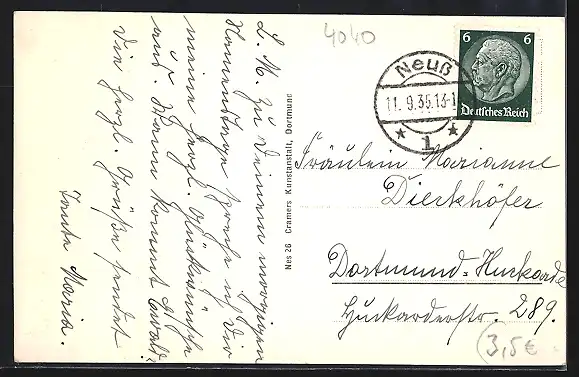 4040
L. M. Zu Deinem morgigen
Namenstage spreche ich Dir
meine herzl. Glückwünsche
aus. Wann kommt Ewald?
Die herzl. Grüße sendet
Tante Maria.
Nes 26 Cramers Kunstanstalt, Dortmund
Neuß
11. 9.35.13-1
1
6 6
Deutsches Reich
Fräulein Marianne
Dieckhöfer
Dortmund-Huckarde
Huckarderstr. 289.
3,5€